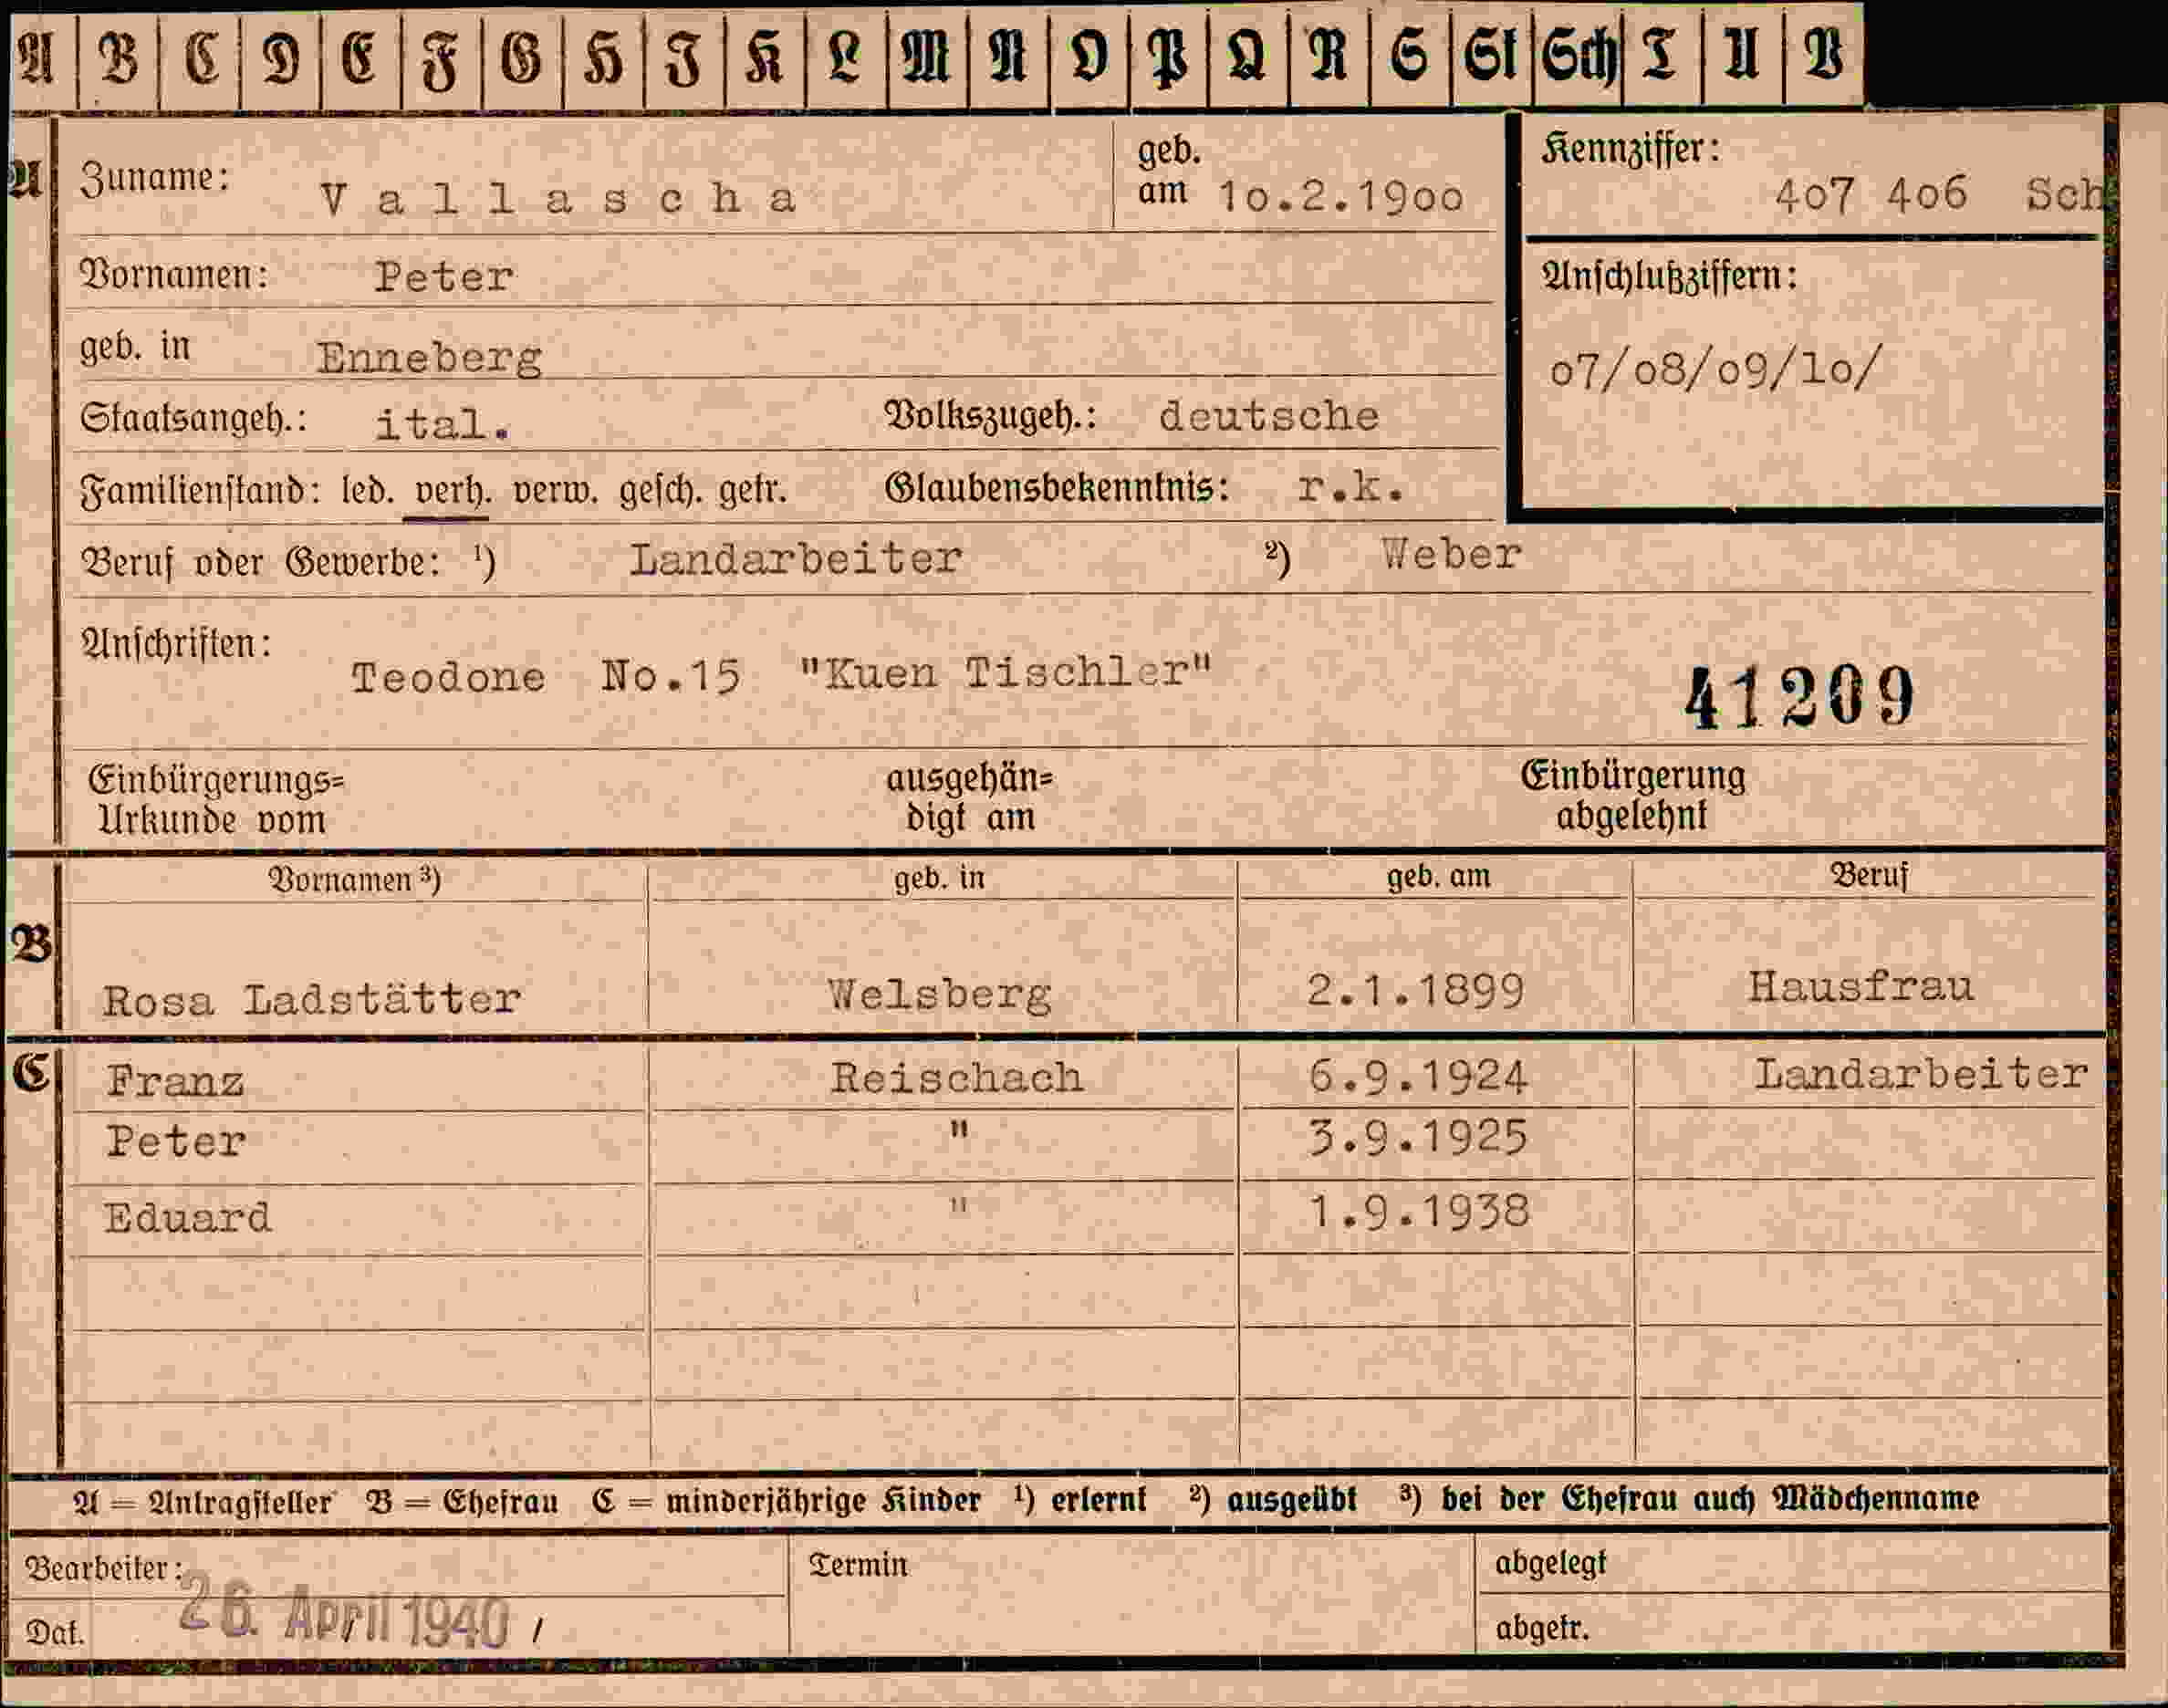 A B C D E F G H I K L M N O P Q R S St Sch T U V
A Zuname: Vallascha geb. am 10.2.1900 Kennziffer: 407 406 Sch
Vornamen: Peter Anschlußziffern:
geb. in Enneberg 07/08/09/10/
Staatsangeh.: ital. Volkszugeh.: deutsche
Familienstand: led. verh. verw. gesch. getr. Glaubensbekenntnis: r.k.
Beruf oder Gewerbe: ¹) Landarbeiter ²) Weber
Anschriften: Teodone No.15 "Kuen Tischler" 41209
Einbürgerungs= ausgehän= Einbürgerung
Urkunde vom digt am abgelehnt
Vornamen ³) geb. in geb. am Beruf
B Rosa Ladstätter Welsberg 2.1.1899 Hausfrau
C Franz Reischach 6.9.1924 Landarbeiter
Peter " 3.9.1925
Eduard " 1.9.1938
A = Antragsteller B = Ehefrau C = minderjährige Kinder ¹) erlernt ²) ausgeübt ³) bei der Ehefrau auch Mädchenname
Bearbeiter: Termin abgelegt
Dat. 26. April 1940 / abgetr.